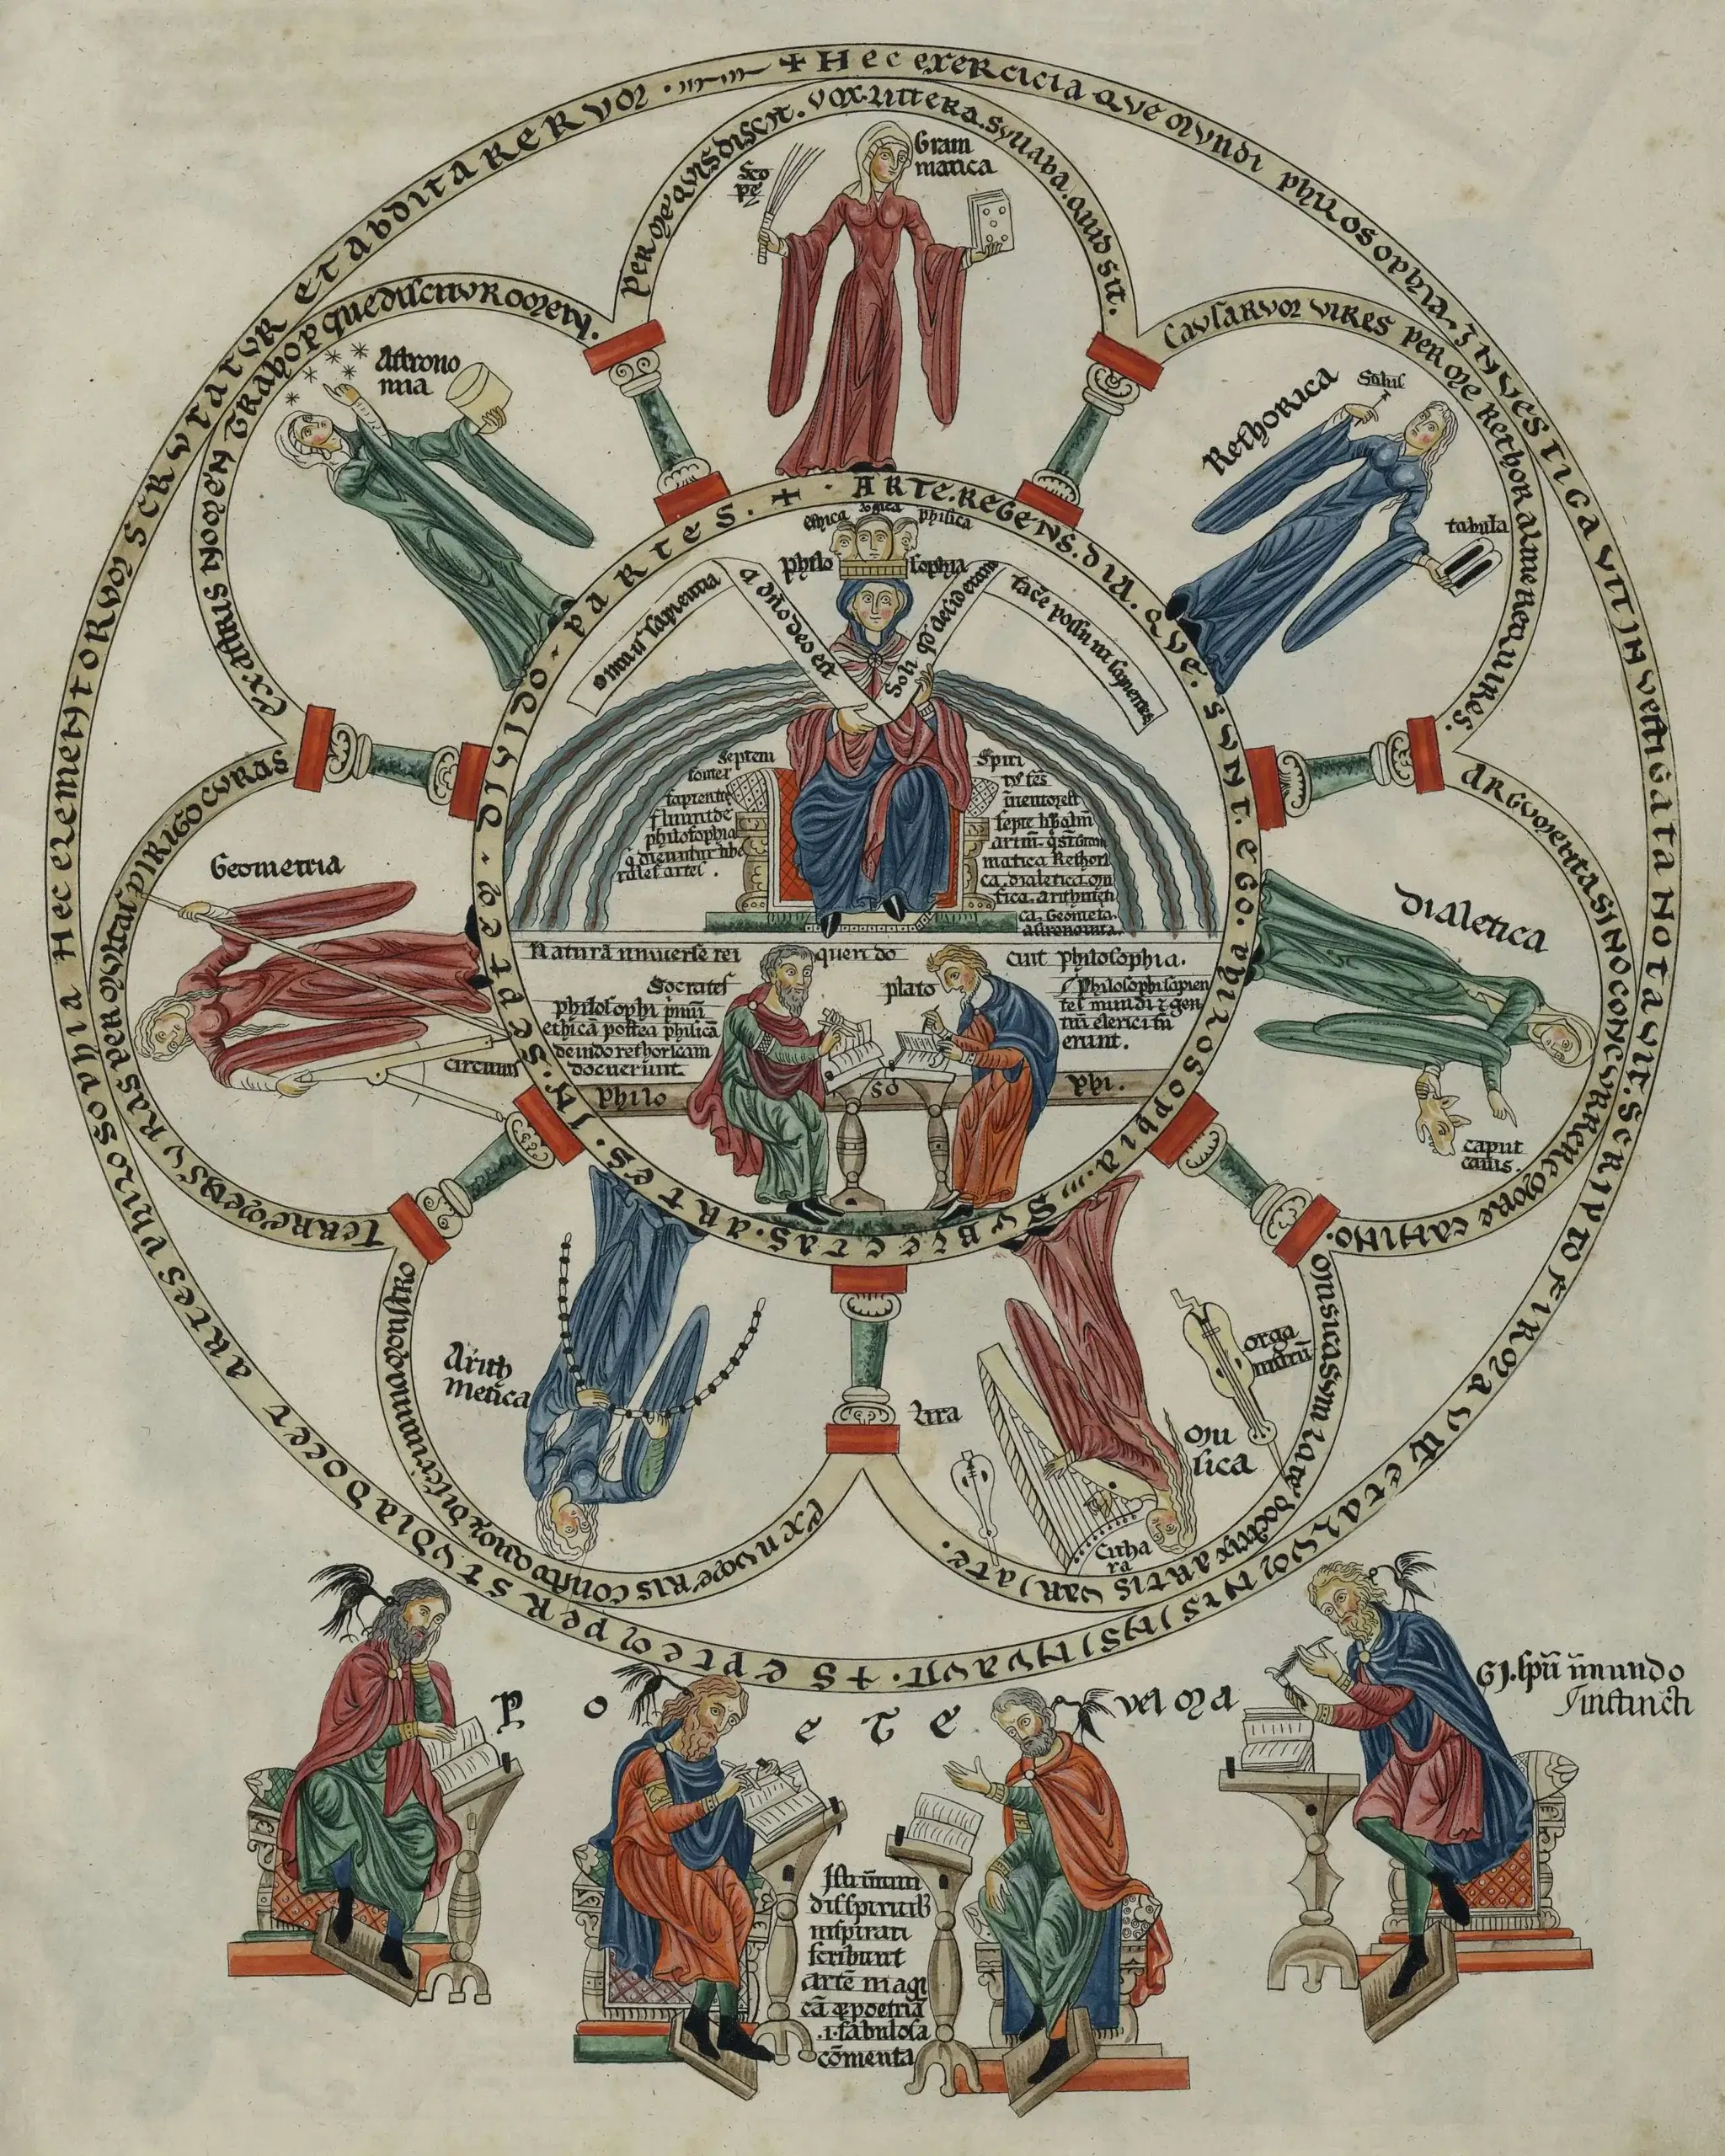 + Hec exercicia que mundi philosophia. Investigavit investigata notavit. Scripto firmavit et alumnis insinuavit.
+ Septem per studia docet artes philosophia Hec elementorum scrutatur et abdita rerum.
Per me quis discit. vox. littera. syllaba. quid sit.
Scope
Gram
matica
Causarum vires per me rethor alme requires.
Rethorica
Stilus
tabula
Argumenta sino concurrere more canino.
Dialetica
caput
canis.
Musica sum late doctrix artis variate.
Musica
orga
nistrum
Lira
Citha
ra
Ex numeris consto quorum discrimina monstro
Arith
metica
Terre mensuras per multas dirigo curas
Geometria
circinus
Ex astris nomen traho per que discitur omen.
Astrono
mia
+ . ARTE. REGENS. DIA. QVE. SVNT. EGO. PHILOSOPHIA. SVBIECTAS. ARTES. IN. SEPTEM. DIVIDO. PARTES.
ethica logica phisica
Philo sophia
Omnis sapientia
a dno deo est
Soli qd desideran
tace possunt sapientes
Septem
fontes
sapientie
fluunt de
philosophia
q dicuntur libe
rales artes.
Spiri
tus scs
inventor est
septe liberaliu
artiu. q st Gram
matica Rethori
ca. dialetica. mu
sica. arithmeti
ca. Geometria.
astronomia.
Natura universe rei queri do cuit philosophia.
Socrates
plato
philosophi primu
ethica postea phisica
deinde rethoricam
docuerunt
Philosophi sapien
tes mundi & gen
tiu clerici fu
erunt.
philo so phi.
Poete vel magi. spu inmundo
instincti
Isti inmun
dis spiritib
inspirati
scribunt
arte magi
ca & poetria
.i. fabulosa
comenta